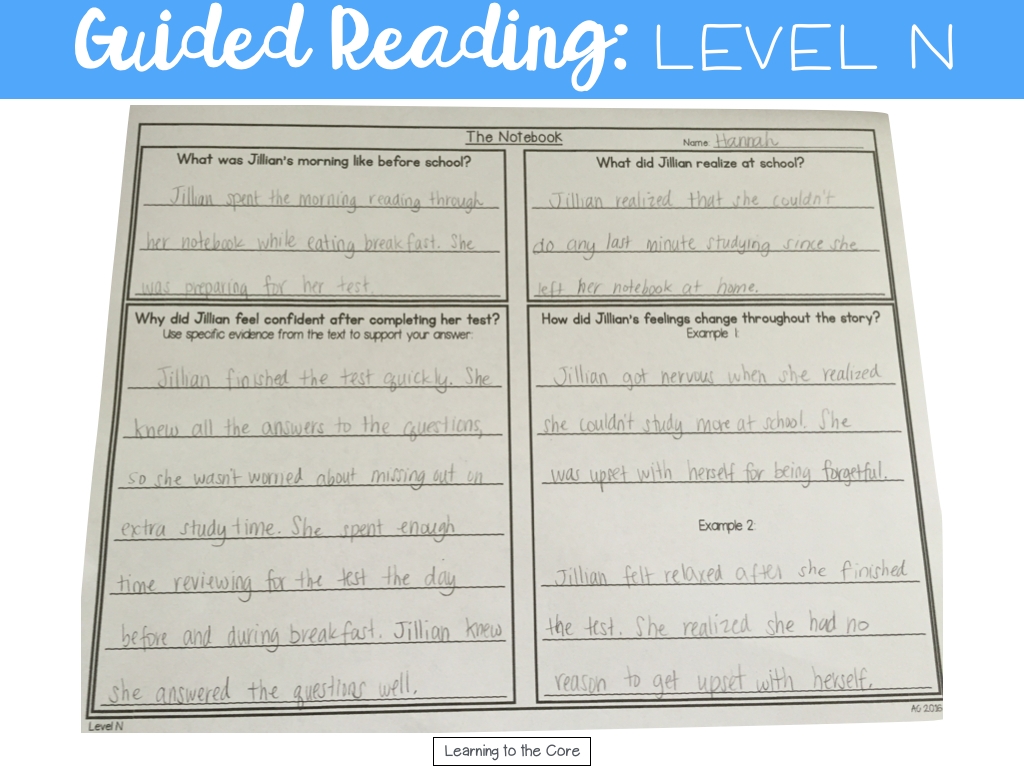 Guided Reading: LEVEL N
The Notebook
Name: Hannah
What was Jillian's morning like before school?
Jillian spent the morning reading through
her notebook while eating breakfast. She
was preparing for her test.
What did Jillian realize at school?
Jillian realized that she couldn't
do any last minute studying since she
left her notebook at home.
Why did Jillian feel confident after completing her test?
Use specific evidence from the text to support your answer.
Jillian finished the test quickly. She
knew all the answers to the questions,
so she wasn't worried about missing out on
extra study time. She spent enough
time reviewing for the test the day
before and during breakfast. Jillian knew
she answered the questions well.
How did Jillian's feelings change throughout the story?
Example 1:
Jillian got nervous when she realized
she couldn't study more at school. She
was upset with herself for being forgetful.
Example 2:
Jillian felt relaxed after she finished
the test. She realized she had no
reason to get upset with herself.
Level N
AG 2016
Learning to the Core